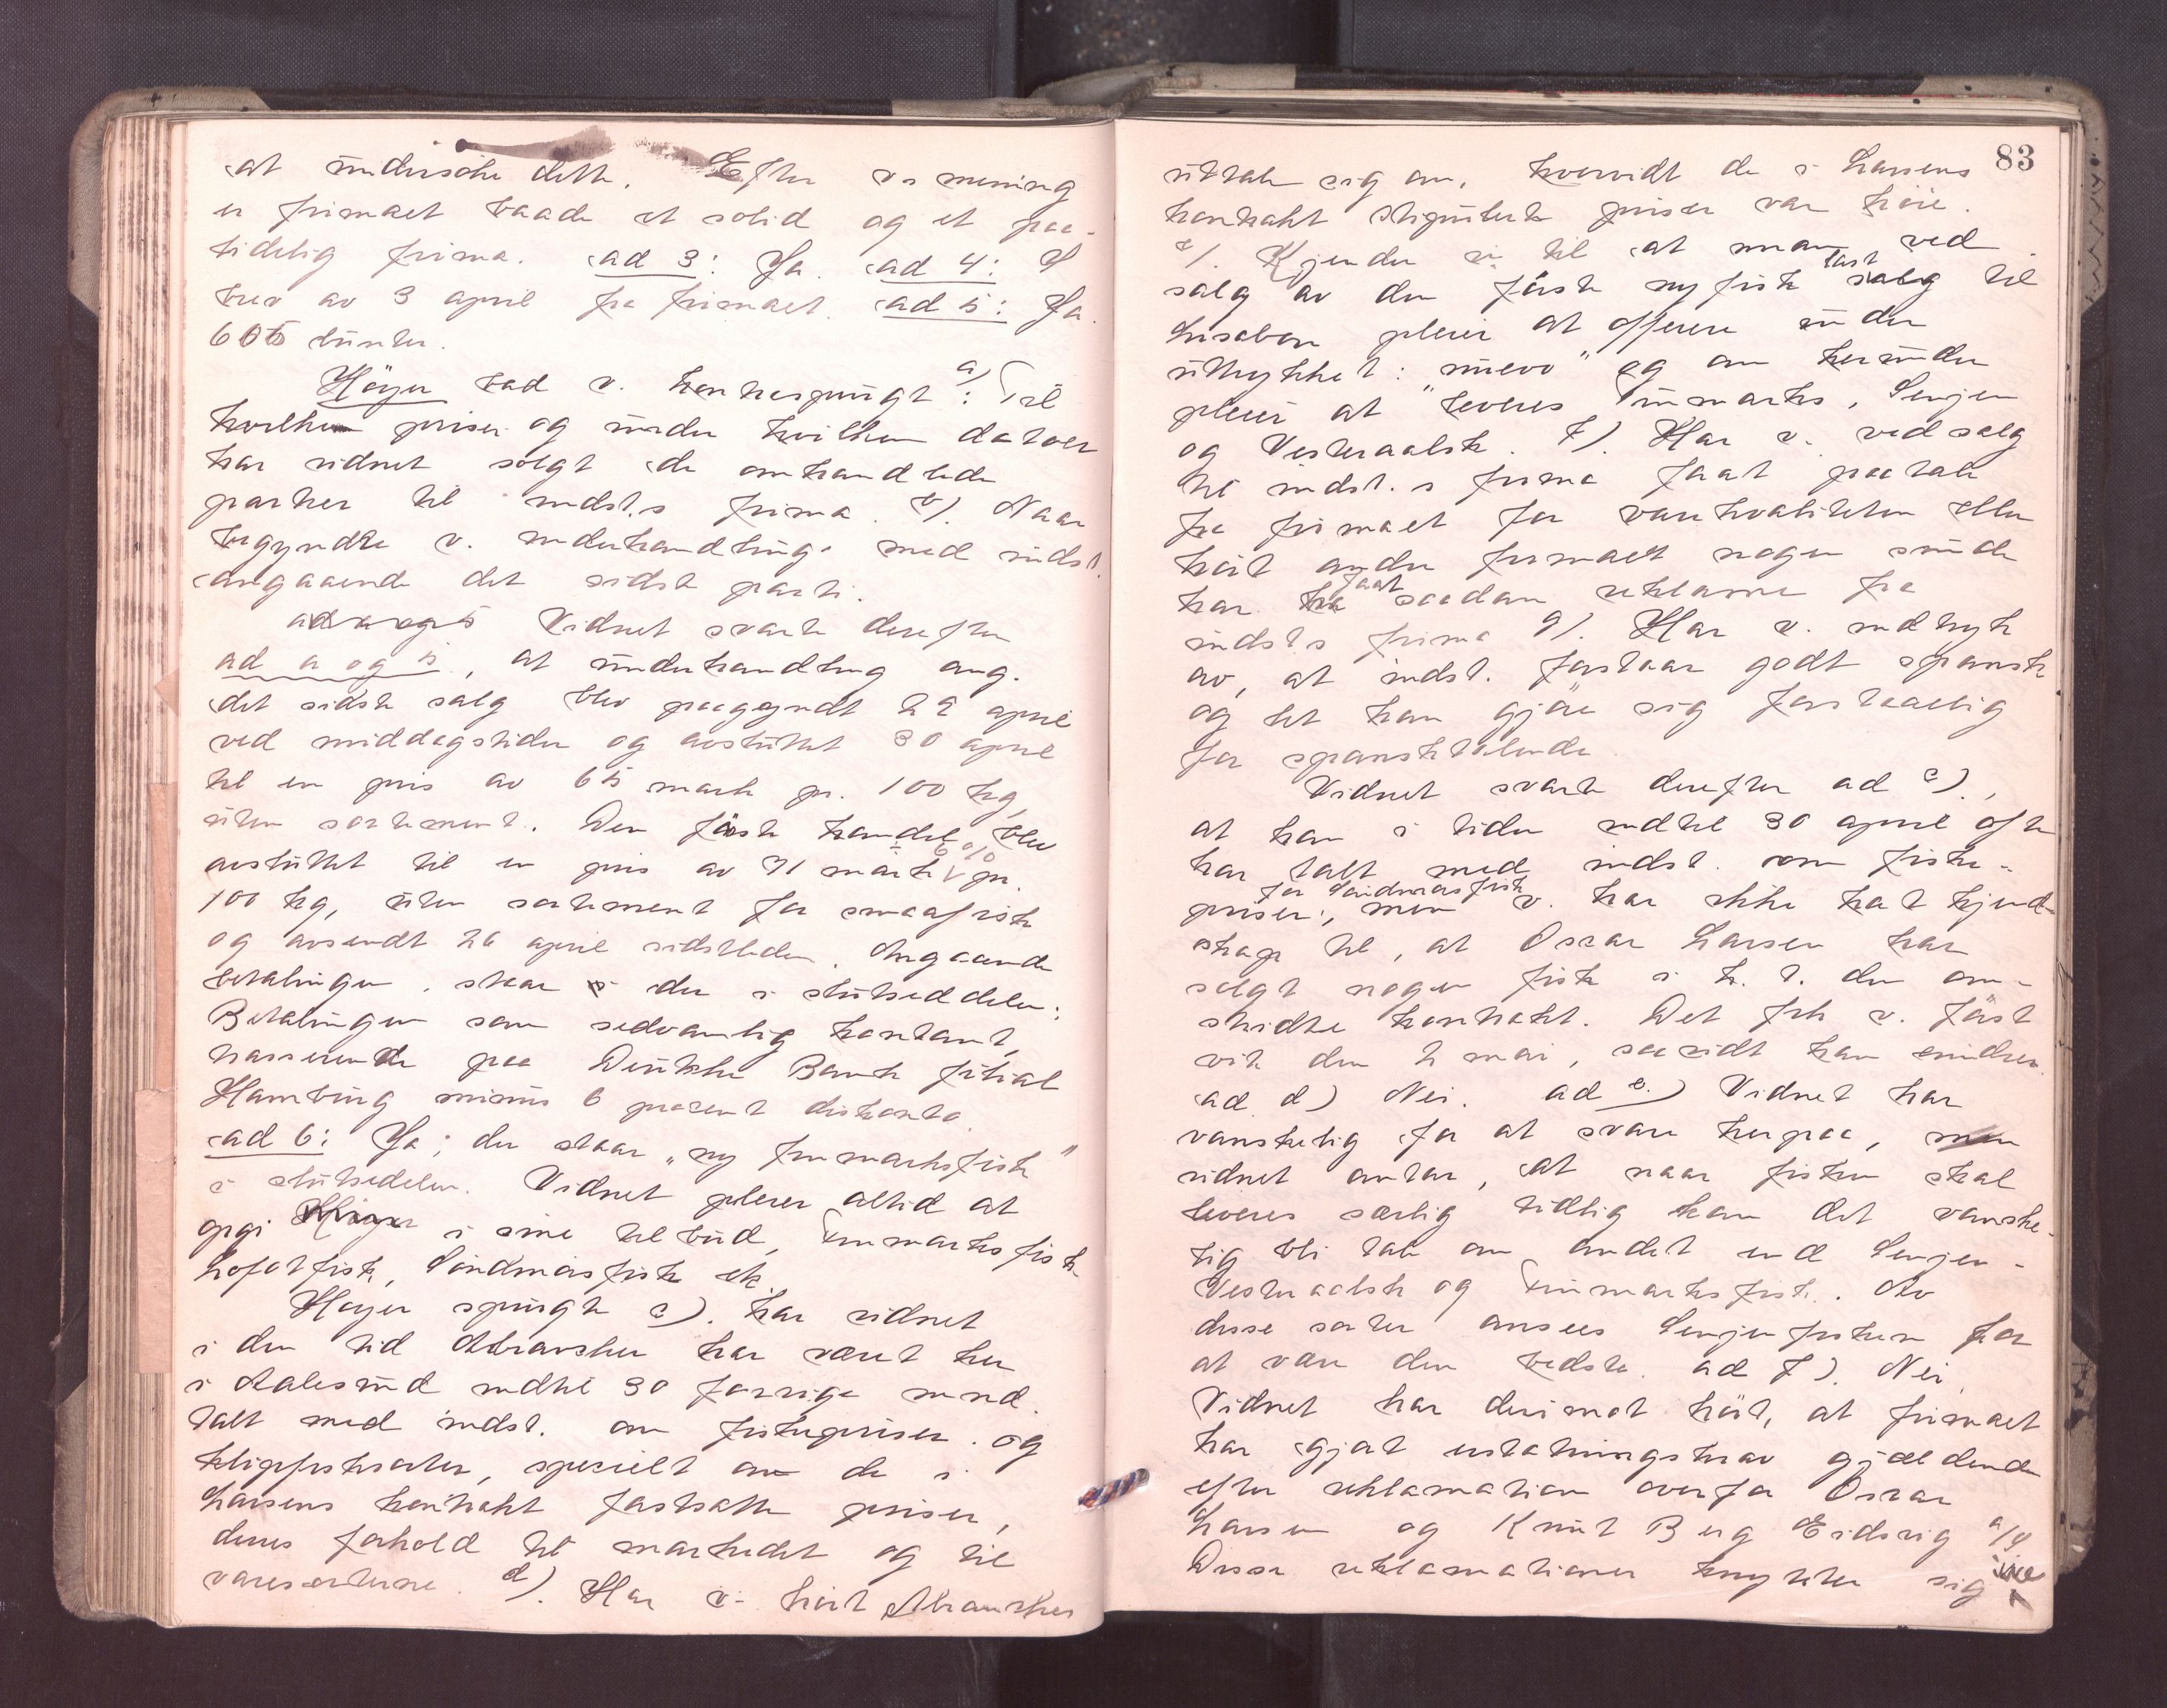 at undersöke dette. Efter v.s mening
er firmaet baade et solid og et paa-
lidelig firma. ad 3: Ja. ad 4: I
brev av 3 april fra firmaet. ad 5: Ja.
605 bunter.
Höyer bad v. kontraspurgt: a) Til
hvilken priser og under hvilken datoer
har vidnet solgt de omhandlede
partier til indst.s firma. b). Naar
begyndte v. underhandling med indst.
angaaende det sidste parti.
ad a og b Vidnet svarte derefter
ad a og b, at underhandling ang.
det sidste salg blev paagyndt 22 april
ved middagstider og avsluttet 30 april
til en pris av 65 mark pr. 100 kg,
uten sortement. Den förste handel blev
avsluttet til en pris av 71 mark 6 % pr.
100 kg, uten sortement for smaafisk
og avsendt 26 april sidstleden. Angaaende
betalingen, staar der i slutseddelen:
Betalingen som sedvanlig kontant,
trasserende paa Deutsche Bank filial
Hamburg minus 6 procent diskonto.
ad 6: Ja; der staar "ny finmarksfisk"
i slutsedelen. Vidnet pleier altid at
opgi i sine tilbud, Finmarksfisk
Lofotfisk, Söndmörsfisk etc.
Höyer spurgte c). har vidnet
i den tid Abramsher har været her
i Aalesund indtil 30 forrige mnd.
talt med indst. om fiskepriser og
klipfisksorter, specielt om de i
Larsens kontrakt fastsatte priser,
deres forhold til markedet og til
varesorterne. d). Har v. hört Abramsher
83
uttale sig om, hvorvidt de i Larsens
kontrakt stipulerte priser var höie.
e). Kjender v. til at man ved
salg av den förste nyfisk last til
Lissabon pleier at offerere under
uttrykket: "nuevo" og om herunder
pleier at leveres Finmarks, Senjen
og Vesteraalsk. f). Har v. ved salg
til indst.s firma faat paatale
fra firmaet for varekvaliteten eller
hört andre firmaer nogensinde
har faat saadan reklame fra
indst.s firma g). Har v. indtryk
av, at indst. forstaar godt spansk
og let kan gjöre sig forstaaelig
for spansktalende.
Vidnet svarte derefter ad c).,
at han i tiden indtil 30 april ofte
har talt med indst. om fiske-
priser for Söndmörsfisk, men v. har ikke hat kjend-
skap til, at Oscar Larsen har
solgt nogen fisk i h.t. den om-
stridte kontrakt. Det fik v. först
vite den 2 mai, saavidt han erindrer.
ad d) Nei. ad e.) Vidnet har
vanskelig for at svare herpaa, men
vidnet antar, at naar fisken skal
leveres særlig tidlig kan det vanske-
lig bli tale om andet end Senjen-
Vesteraalsk og Finmarksfisk. Av
disse sorter ansees Senjenfisken for
at være den bedste. ad f). Nei.
Vidnet har derimot hört, at firmaet
har gjort erstatningskrav gjældende
efter reklamation overfor Oscar
Larsen og Knut Berg Eidsvig a/s
Disse reklamationer knytter sig